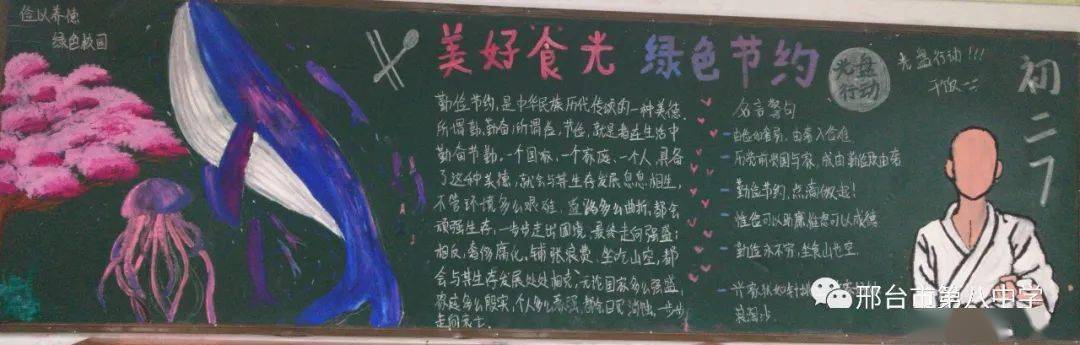 俭以养德
绿色校园
美好食光 绿色节约
光盘
行动
光盘行动!!!
干饭
初二7
勤俭节约,是中华民族历代传颂的一种美德.
所谓勤,勤奋;所谓俭,节俭,就是指在生活中
勤奋节勤,一个国家,一个家庭,一个人,具备
了这种美德,就会与其生存发展息息相生,
不管环境多么艰难,道路多么曲折,都会
顽强生存,一步步走出困境,最终走向强盛;
相反,奢侈腐化,铺张浪费,坐吃山空,都
会与其生存发展处处相克,无论国家多么强盛
家庭多么殷实,个人多么富强,都会日见消蚀,一步步
走向灭亡.
名言警句
由俭入奢易,由奢入俭难
历览前贤国与家,成由勤俭败由奢
勤俭节约,点滴做起!
惟俭可以助廉,惟恕可以成德
勤俭永不穷,坐食山也空.
兴家犹如针挑
浪淘沙
邢台市第八中学